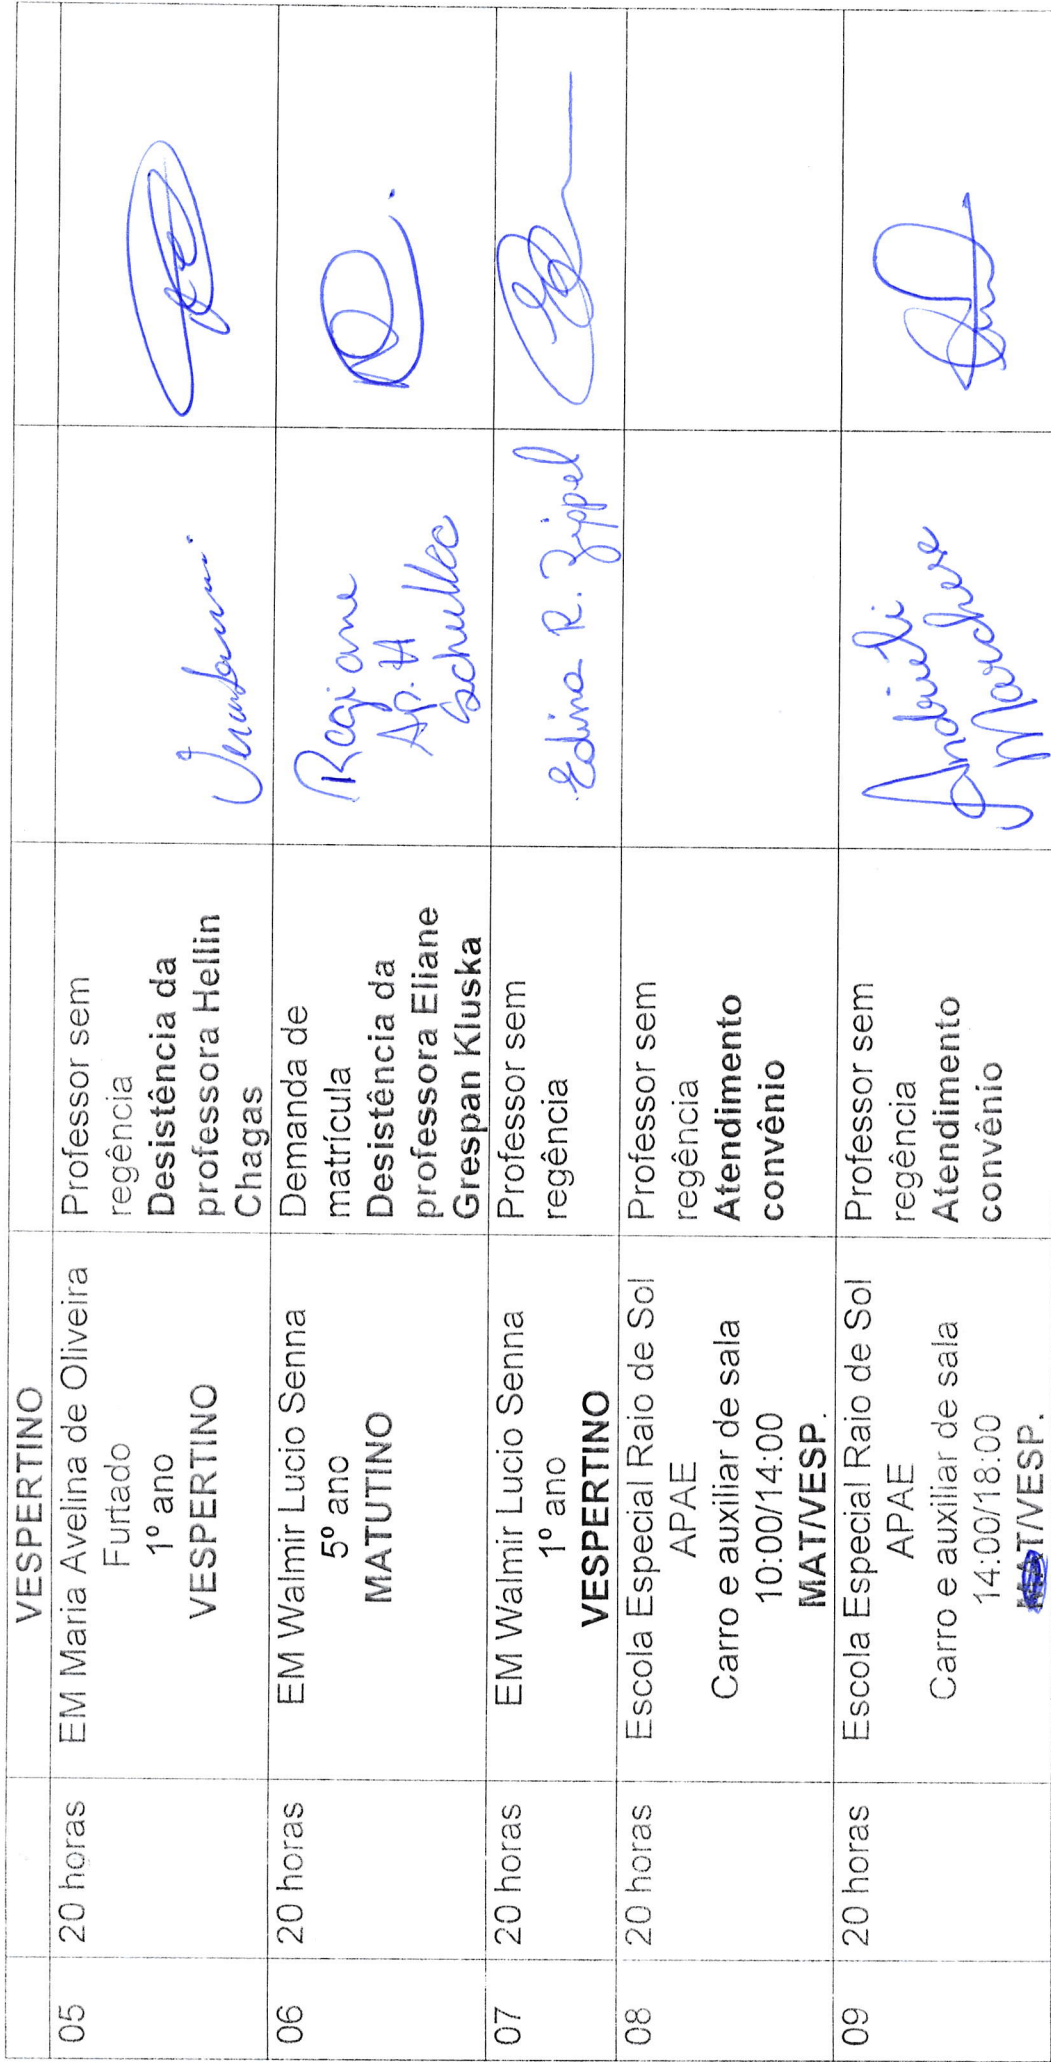 VESPERTINO
05
20 horas
EM Maria Avelina de Oliveira
Furtado
1º ano
VESPERTINO
Professor sem
regência
Desistência da
professora Hellin
Chagas
06
20 horas
EM Walmir Lucio Senna
5º ano
MATUTINO
Demanda de
matrícula
Desistência da
professora Eliane
Grespan Kluska
Regiane
Ap. H
07
20 horas
EM Walmir Lucio Senna
1º ano
VESPERTINO
Professor sem
regência
Edina R. Zippel
08
20 horas
Escola Especial Raio de Sol
APAE
Carro e auxiliar de sala
10:00/14:00
MAT/VESP.
Professor sem
regência
Atendimento
convênio
09
20 horas
Escola Especial Raio de Sol
APAE
Carro e auxiliar de sala
14:00/18:00
MAT/VESP.
Professor sem
regência
Atendimento
convênio
Andrieli